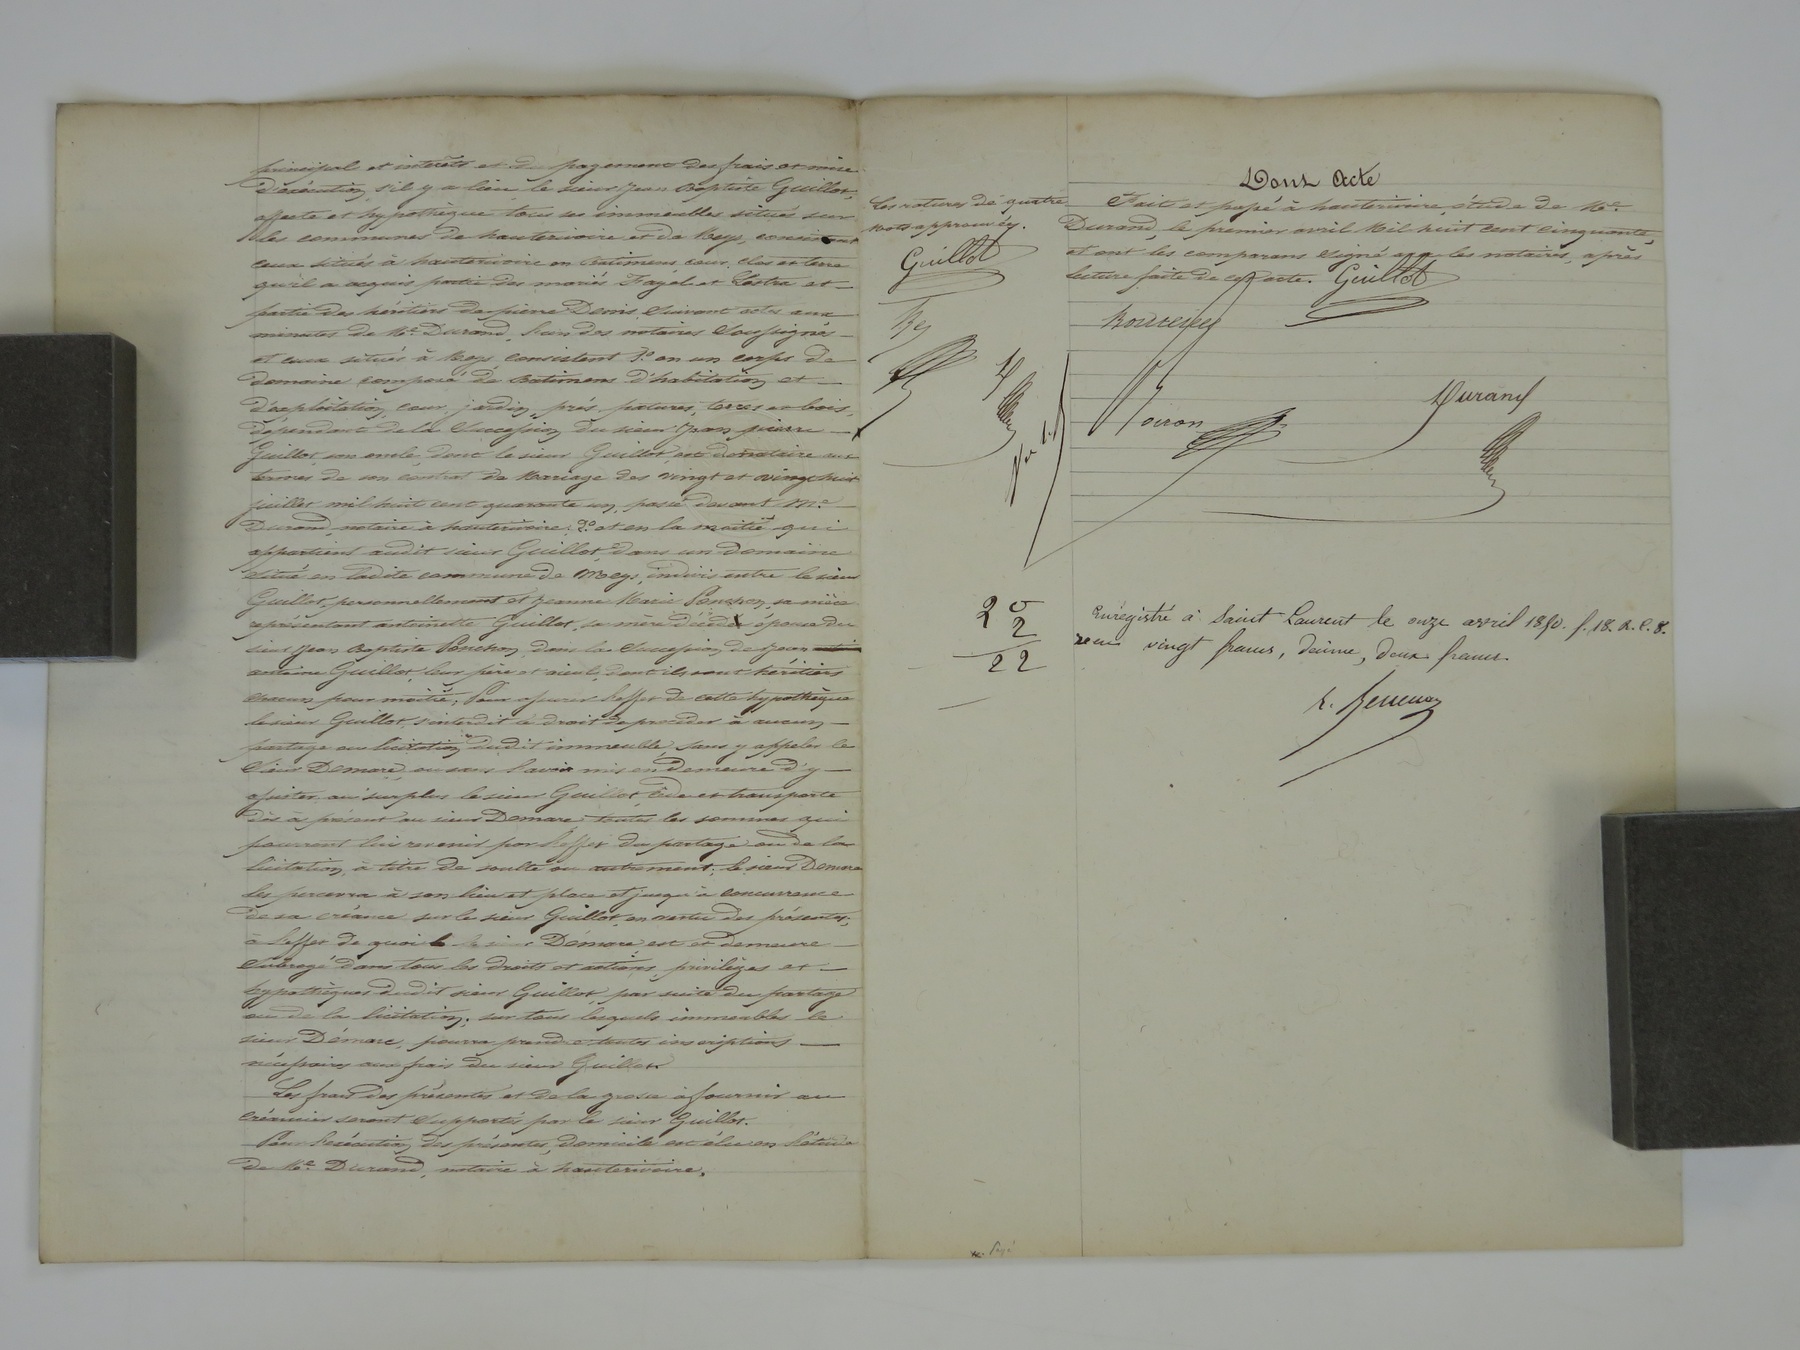 principal et intérêts et du payement des frais et mise
d'exécution, s'il y a lieu, le sieur Jean Baptiste Guillot,
affecte et hypothèque tous ses immeubles situés sur
les communes de hauterivoire et de Meys, consistant
ceux situés à hauterivoire en batimens cour, clos et terre
qu'il a acquis partie des mariés Fayel et Lestra et
partie des héritiers de pierre Denis, suivant actes aux
minutes de Me. Durand, l'un des notaires soussignés
et ceux situés à Meys consistent 1o. en un corps de
domaine composé de batimens d'habitation et
d'exploitation, cour, jardin, prés, patures, terres et bois,
dépendant de la succession du sieur Jean pierre
Guillot, son oncle, dont le sieur Guillot, est donataire aux
termes de son contrat de mariage des vingt et vingt huit
juillet mil huit cent quarante un, passé devant Me.
Durand, notaire à hauterivoire; 2o et en la moitié qui
appartient audit sieur Guillot, dans un domaine
situé en ladite commune de Meys, indivis entre le sieur
Guillot, personnellement et Jeanne Marie Ponchon, sa nièce
représentant antoinette Guillot, sa mère décédée épouse du
sieur Jean Baptiste Ponchon, dans la succession de Jean
antoine Guillot, leur père et aïeul, dont ils sont héritiers
chacun pour moitié; Pour assurer l'effet de cette hypothèque
le sieur Guillot s'interdit le droit de procéder à aucun
partage ou licitation dudit immeuble, sans y appeler le
sieur Demare, ou sans l'avoir mis en demeure d'y
assister, au surplus le sieur Guillot, cède et transporte
dès à présent au sieur Demare toutes les sommes qui
pourront lui revenir par l'effet du partage ou de la
licitation, à titre de soulte ou autrement; le sieur Demare
les percevra à son lieu et place et jusqu'à concurrence
de sa créance sur le sieur Guillot, en vertu des présentes,
à l'effet de quoi le sieur Démare est et demeure
subrogé dans tous les droits et actions, privilèges et
hypothèques dudit sieur Guillot, par suite du partage
ou de la licitation; sur tous lesquels immeubles le
sieur Démare, pourra prendre toutes inscriptions
nécessaires aux frais du sieur Guillot.
Les frais des présentes et de la grosse à fournir au
créancier seront supportés par le sieur Guillot.
Pour l'exécution des présentes, domicile est élu en l'étude
de Me. Durand, notaire à hauterivoire.
Les ratures de quatre
mots approuvées.
Guillot
Dont Acte
Fait et passé à hauterivoire, étude de Me.
Durand, le premier avril mil huit cent cinquante,
et ont les comparans signé avec les notaires, après
lecture faite de cet acte. Guillot
Durand
20
2
22
Enregistré à Saint Laurent le onze avril 1850. f. 18. R. C. 8.
reçu vingt francs, décime, deux francs.